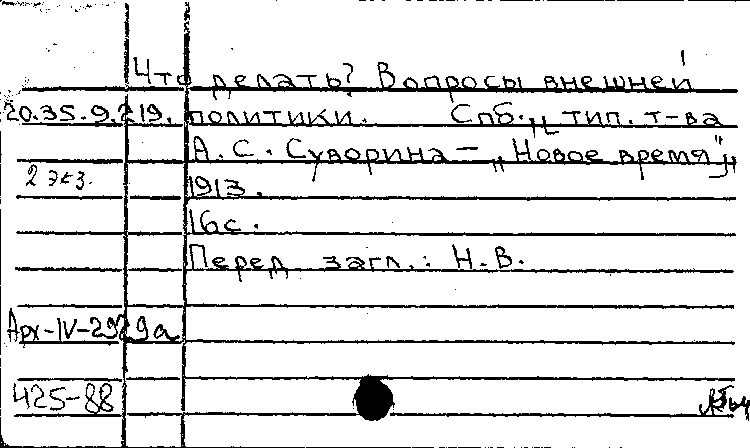 Что делать? Вопросы внешней
20.35.9.219. политики. Спб., тип. т-ва
А. С. Суворина – „Новое время",
2 экз. 1913.
16 с.
Перед загл.: Н. В.
Арх-IV-2929а
425-88